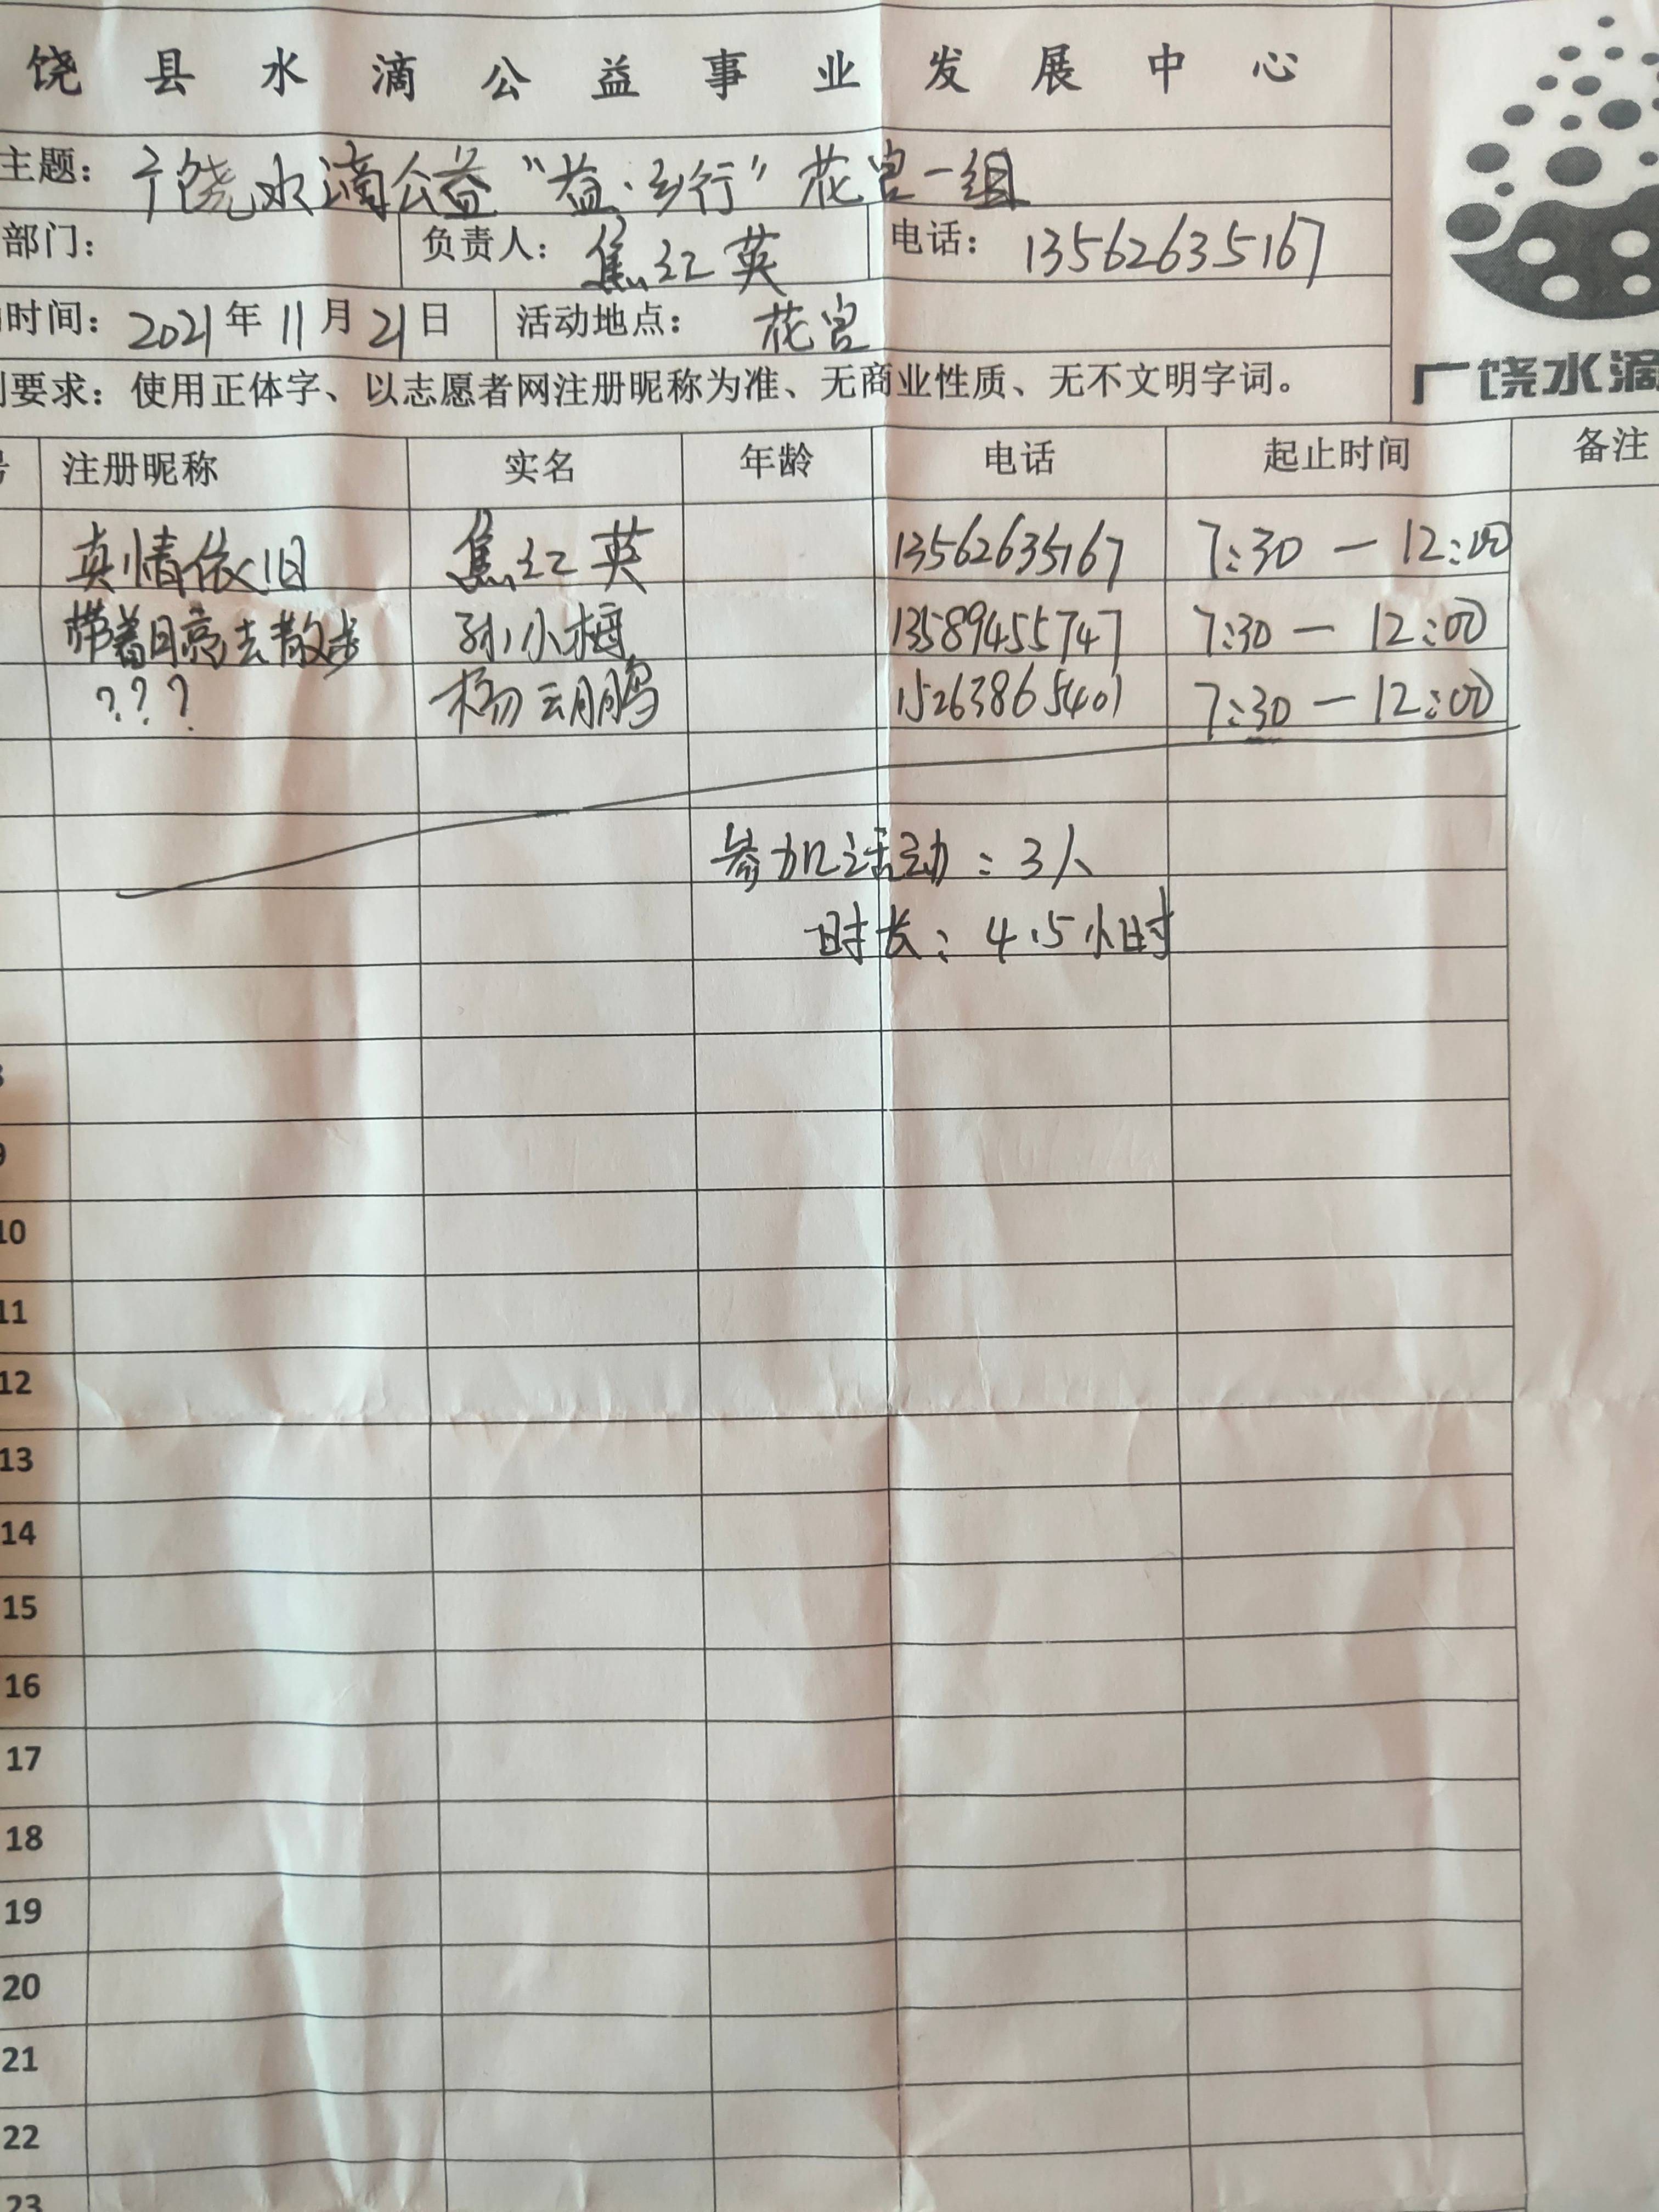 饶县水滴公益事业发展中心
主题：广饶水滴公益“益·乡行”花官一组
部门： 负责人：焦红英 电话：13562635167
时间：2021年11月21日 活动地点：花官
要求：使用正体字、以志愿者网注册昵称为准、无商业性质、无不文明字词。
广饶水滴
注册昵称 实名 年龄 电话 起止时间 备注
真情依旧 焦红英 13562635167 7:30 — 12:00
带着月亮去散步 孙小梅 13589455747 7:30 — 12:00
??? 杨云鹏 15263865401 7:30 — 12:00
参加活动：3人
时长：4.5小时
9
10
11
12
13
14
15
16
17
18
19
20
21
22
23